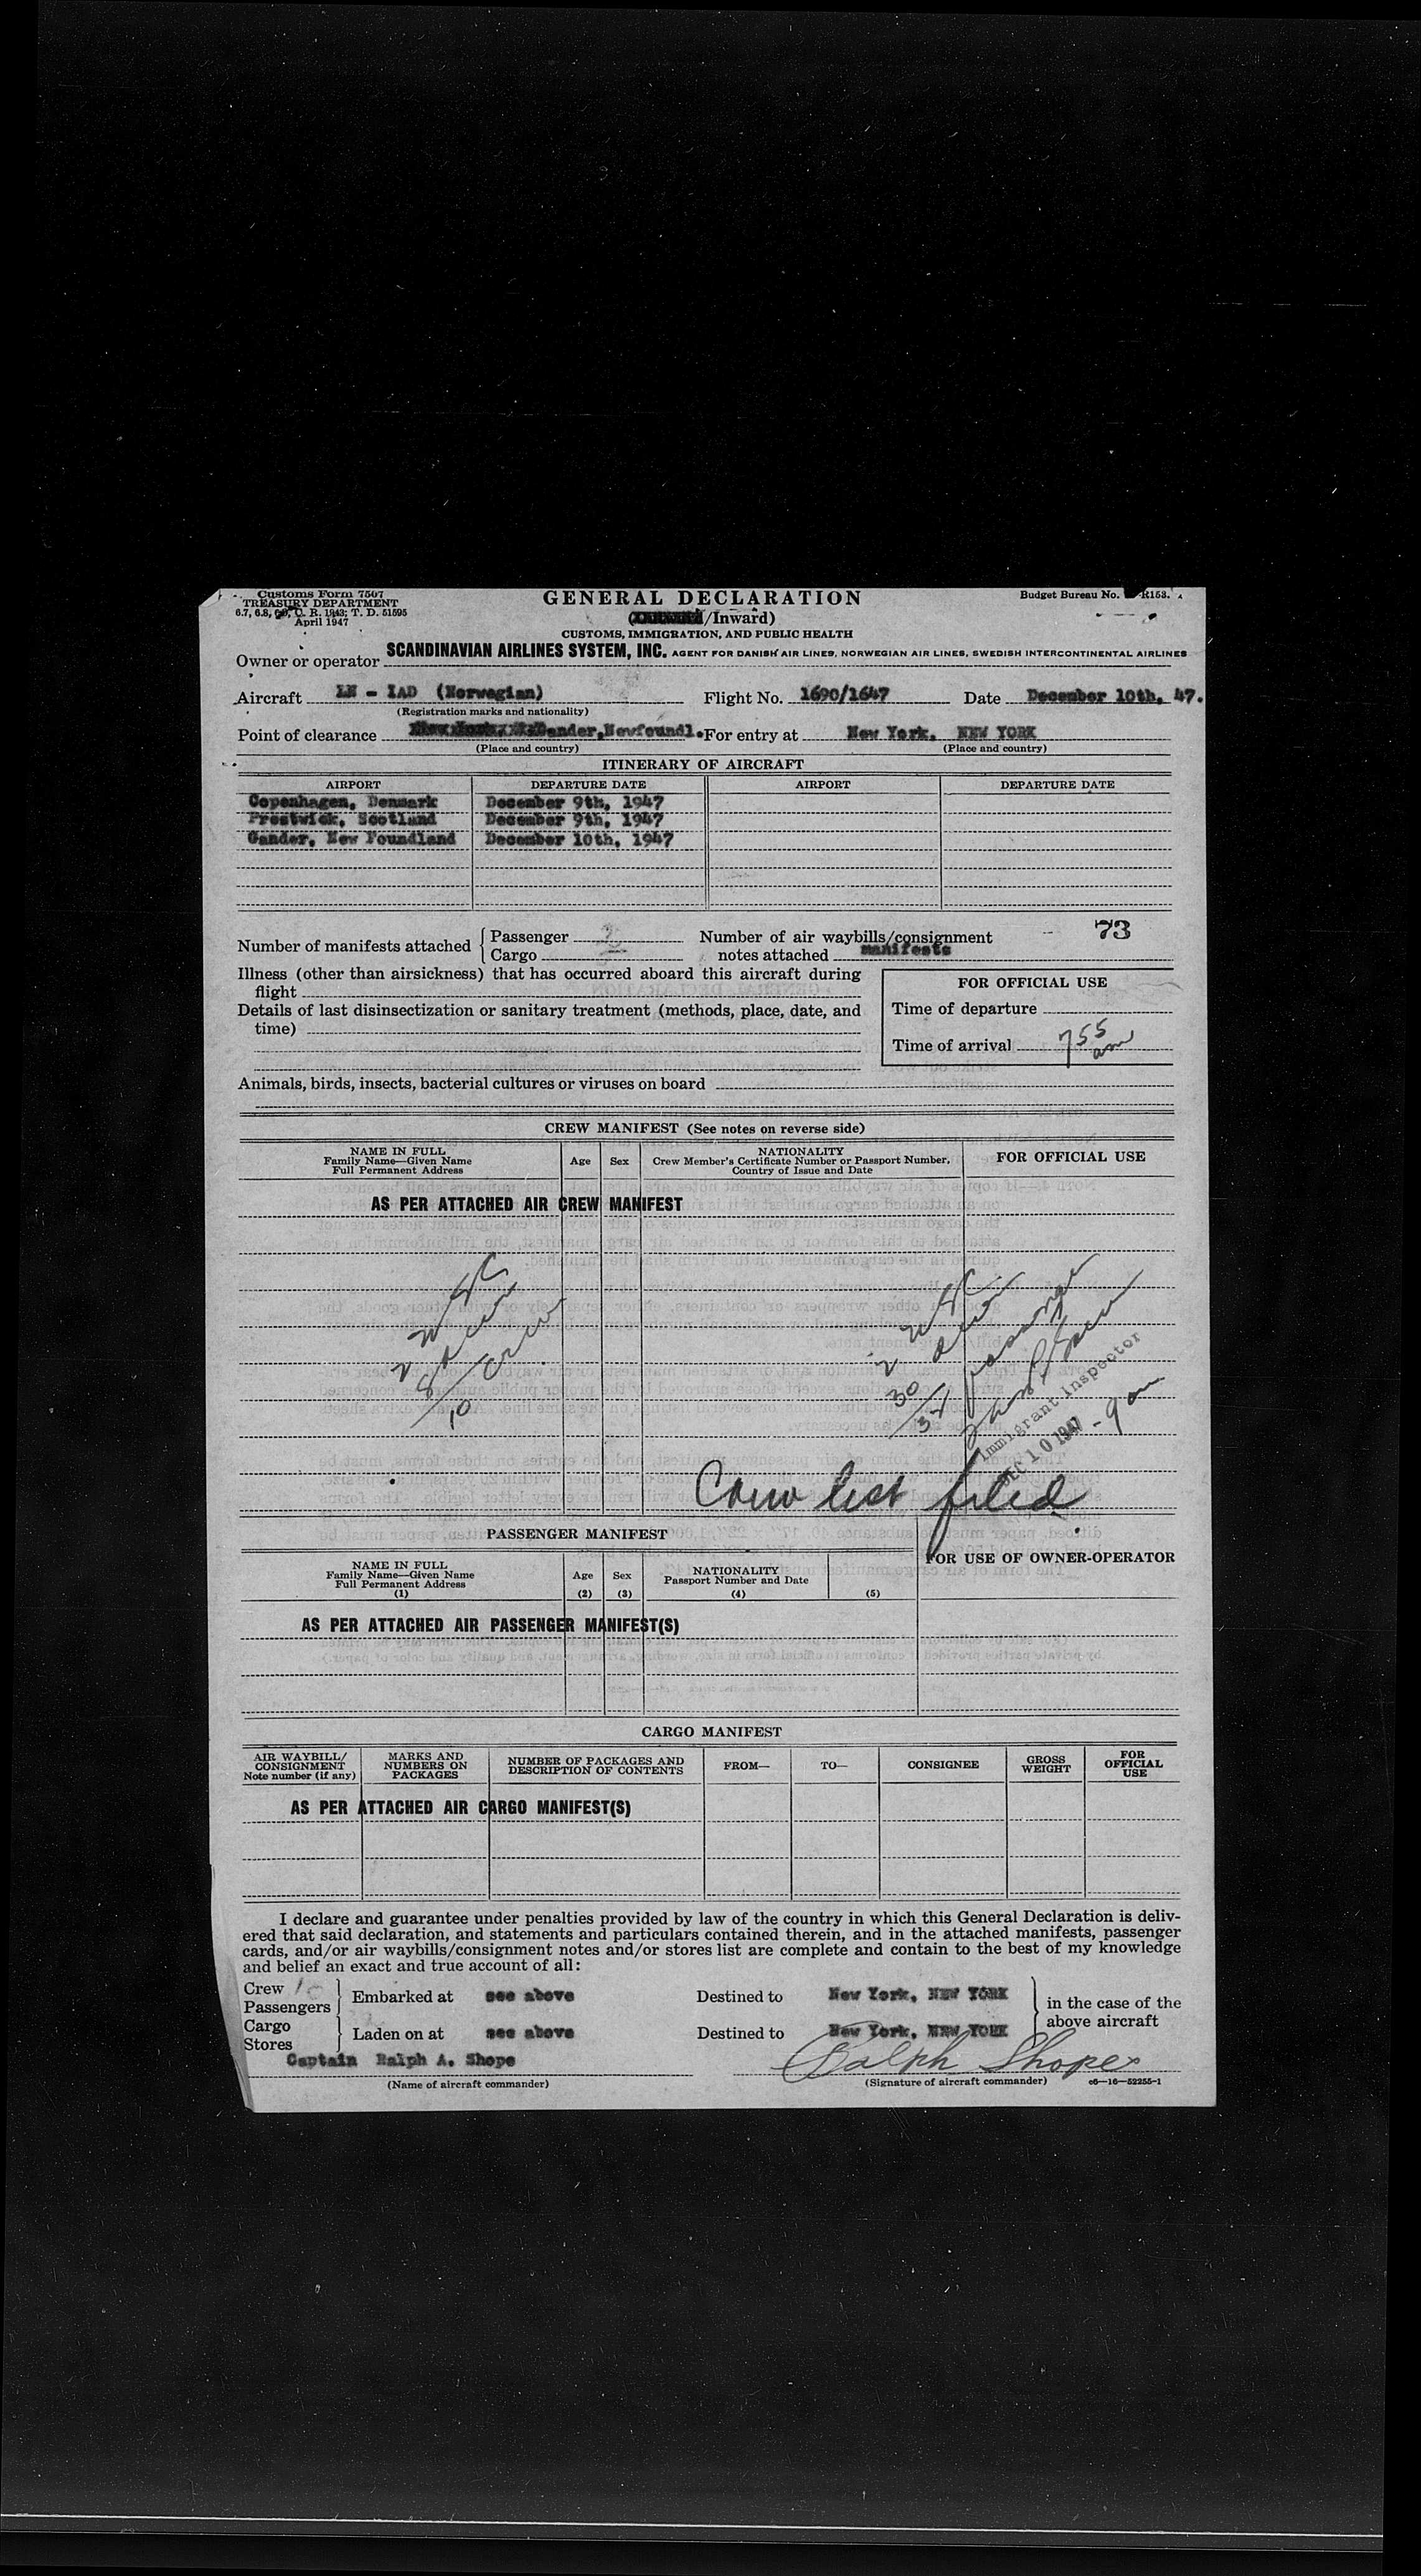 Customs Form 7507
TREASURY DEPARTMENT
6.7, 6.8, C. R. 1943; T. D. 51595
April 1947
GENERAL DECLARATION
/Inward)
CUSTOMS, IMMIGRATION, AND PUBLIC HEALTH
Budget Bureau No. R153.
Owner or operator SCANDINAVIAN AIRLINES SYSTEM, INC. AGENT FOR DANISH AIR LINES, NORWEGIAN AIR LINES, SWEDISH INTERCONTINENTAL AIRLINES
Aircraft LN - IAD (Norwegian) Flight No. 1690/1647 Date December 10th, 47.
(Registration marks and nationality)
Point of clearance Gander, Newfoundl. For entry at New York, NEW YORK
(Place and country) (Place and country)
ITINERARY OF AIRCRAFT
AIRPORT DEPARTURE DATE AIRPORT DEPARTURE DATE
Copenhagen, Denmark December 9th, 1947
Prestwick, Scotland December 9th, 1947
Gander, New Foundland December 10th, 1947
Number of manifests attached { Passenger 2 Number of air waybills/consignment - 73
Cargo notes attached manifests
Illness (other than airsickness) that has occurred aboard this aircraft during
flight
FOR OFFICIAL USE
Details of last disinsectization or sanitary treatment (methods, place, date, and
time)
Time of departure
Time of arrival 755 am
Animals, birds, insects, bacterial cultures or viruses on board
CREW MANIFEST (See notes on reverse side)
NAME IN FULL
Family Name—Given Name
Full Permanent Address
Age Sex
NATIONALITY
Crew Member's Certificate Number or Passport Number,
Country of Issue and Date
FOR OFFICIAL USE
AS PER ATTACHED AIR CREW MANIFEST
2 USC
8 alien
10 Crew
2 USC
30 alien
passenger
Immigrant Inspector
DEC 10 1947 - 9 am
Crew list filed
PASSENGER MANIFEST
FOR USE OF OWNER-OPERATOR
NAME IN FULL
Family Name—Given Name
Full Permanent Address
(1)
Age
(2)
Sex
(3)
NATIONALITY
Passport Number and Date
(4)
(5)
AS PER ATTACHED AIR PASSENGER MANIFEST(S)
CARGO MANIFEST
AIR WAYBILL/
CONSIGNMENT
Note number (if any)
MARKS AND
NUMBERS ON
PACKAGES
NUMBER OF PACKAGES AND
DESCRIPTION OF CONTENTS
FROM— TO— CONSIGNEE
GROSS
WEIGHT
FOR
OFFICIAL
USE
AS PER ATTACHED AIR CARGO MANIFEST(S)
I declare and guarantee under penalties provided by law of the country in which this General Declaration is deliv-
ered that said declaration, and statements and particulars contained therein, and in the attached manifests, passenger
cards, and/or air waybills/consignment notes and/or stores list are complete and contain to the best of my knowledge
and belief an exact and true account of all:
Crew 10
Passengers } Embarked at see above Destined to New York, NEW YORK } in the case of the
above aircraft
Cargo
Stores } Laden on at see above Destined to New York, NEW YORK
Captain Ralph A. Shope Ralph Shope
(Name of aircraft commander) (Signature of aircraft commander) c6—16—52255-1